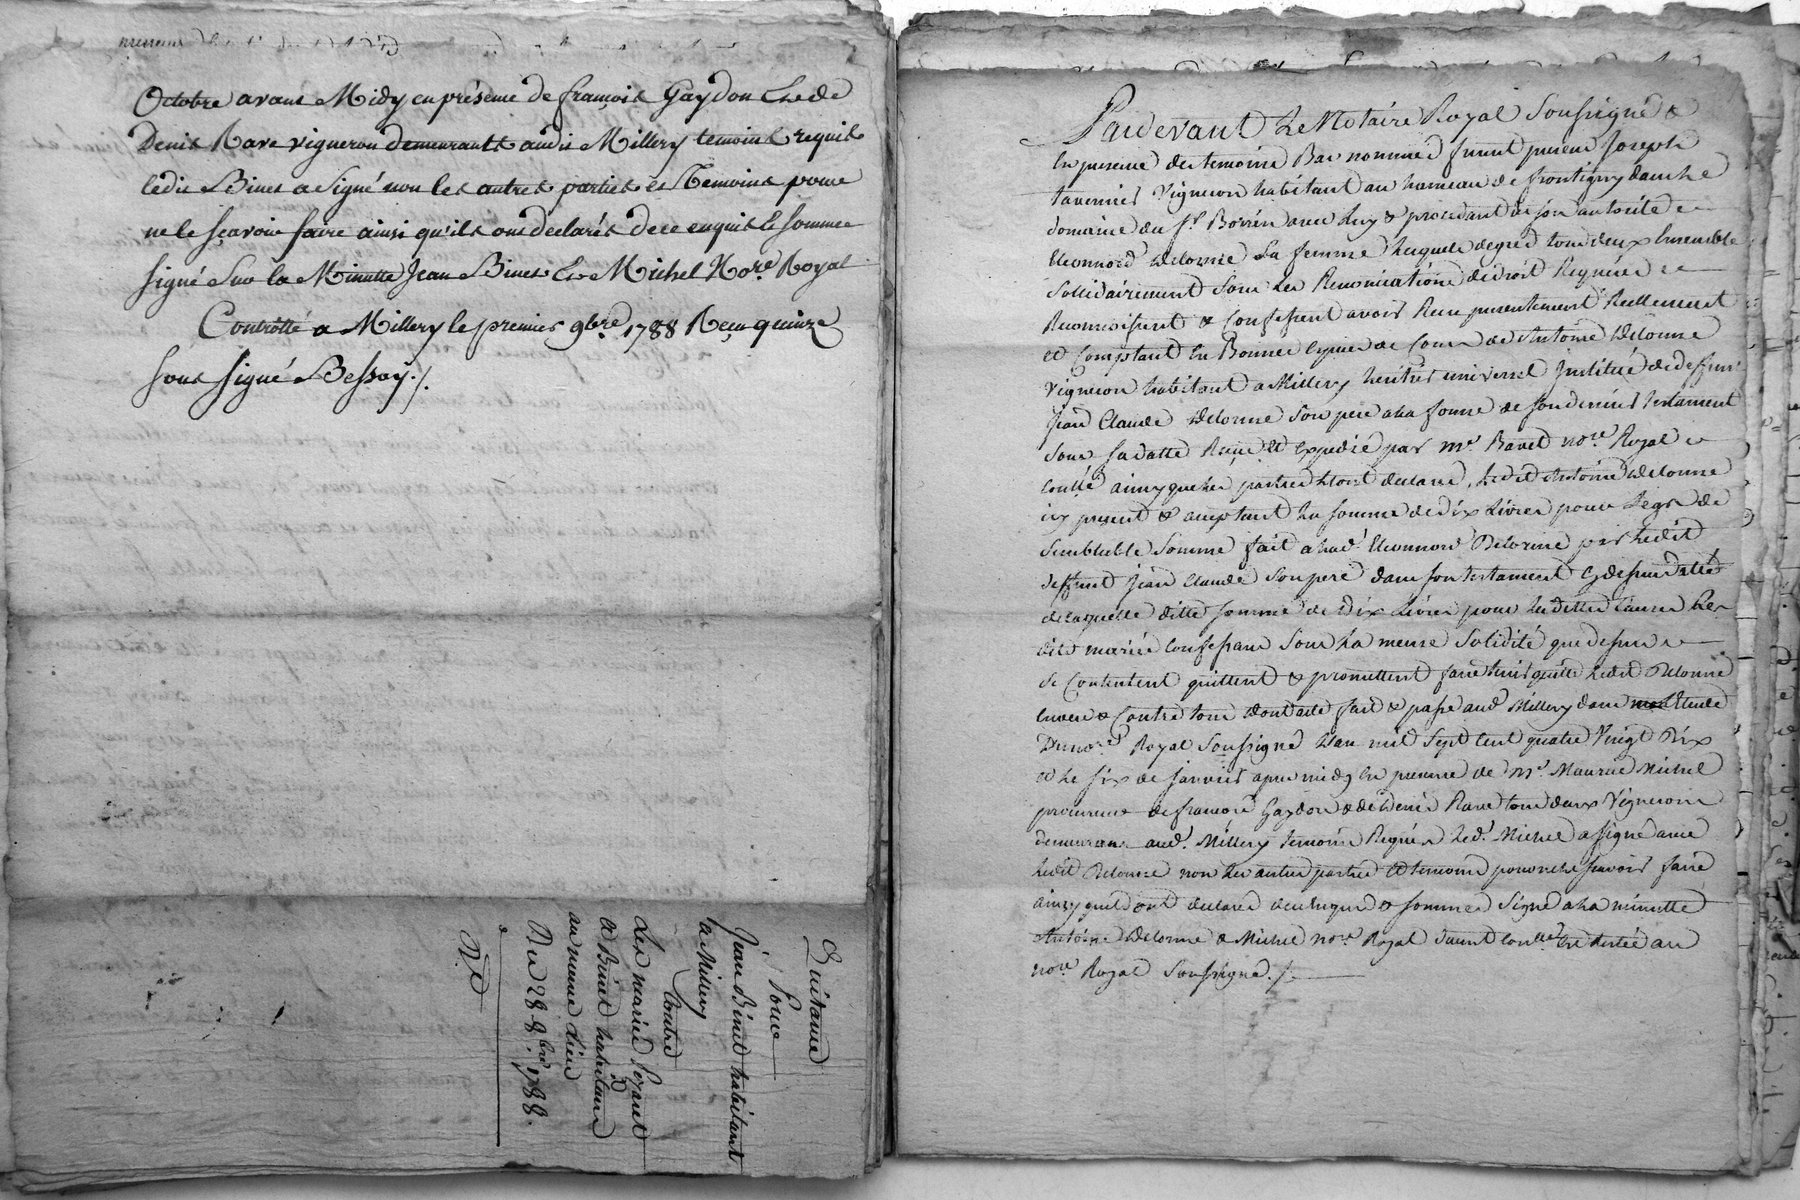 Octobre avant Midy en présence de françois Gaydon Et de
Denis Rave vigneron demeurants audit Millery temoins requis
ledit Binet a signé non les autres parties et Temoins pour
ne le sçavoir faire ainsi qu'ils ont declarés de ce enquis Et sommes
signé sur la Minutte Jean Binet Et Michel No.re Royal
Controllé a Millery le premier 9bre 1788 Reçu quinze
sous signé Bessoy ./.
Quitance
Pour
Jean Binet habitant
a Millery
Contre
Les mariés
et Binet habitans
au meme Lieu
Du 28 8bre 1788.
Pardevant Le Notaire Royal Soussigné &
En presence des temoins Bas nommés furent presens Joseph
tavernier Vigneron habitant au hameau de frontigny dans le
domaine du Sr. avec Luy & procedant de son autorité
Eleonnord Delorme Sa femme Lesquels de gré tous deux Ensemble
Sollidairement Sous Les Renonciations de droit Requises
Reconnoissent & Confessent avoir Reçu presentement Reellement
et Comptant En Bonnes Especes de Cours de Antoine Delorme
Vigneron habitant a Millery heritier universel Institué de deffunt
Jean Claude Delorme Son pere a la forme de son dernier testament
Sous Sa datte Reçu et Expedié par Me. no.re Royal
Conllé ainsy que les parties L'ont declaré, Ledit Antoine Delorme
icy present & acceptant La somme de dix Livres pour Legs de
Semblable Somme fait a lad. Eleonnord Delorme par Ledit
deffunt Jean Claude Son pere dans son testament Cy dessus datté
de laquelle ditte somme de Dix Livres pour Les dittes Causes Les
dits mariés Confessans Sous La meme Solidité que dessus
Se Contentent quittent & promettent faire tenir quitte Ledit Delorme
Envers & Contre tous dont acte fait & passé aud. Millery dans Etude
Du no.re Royal Soussigné L'an mil Sept Cent quatre Vingt Dix
et Le six de janvier apres midy En presence de Me. Maurice Michel
procureur de françois Gaydon & de Denis Rave tous deux Vignerons
demeurans aud. Millery temoins Requis Led. Michel a signé avec
Ledit Delorme non Les autres parties et temoins pour ne le sçavoir faire
ainsy quils ont declarés de ce Enquis & sommes Signé a la minutte
Antoine Delorme & Michel no.re Royal au
no.re Royal Soussigné ./.